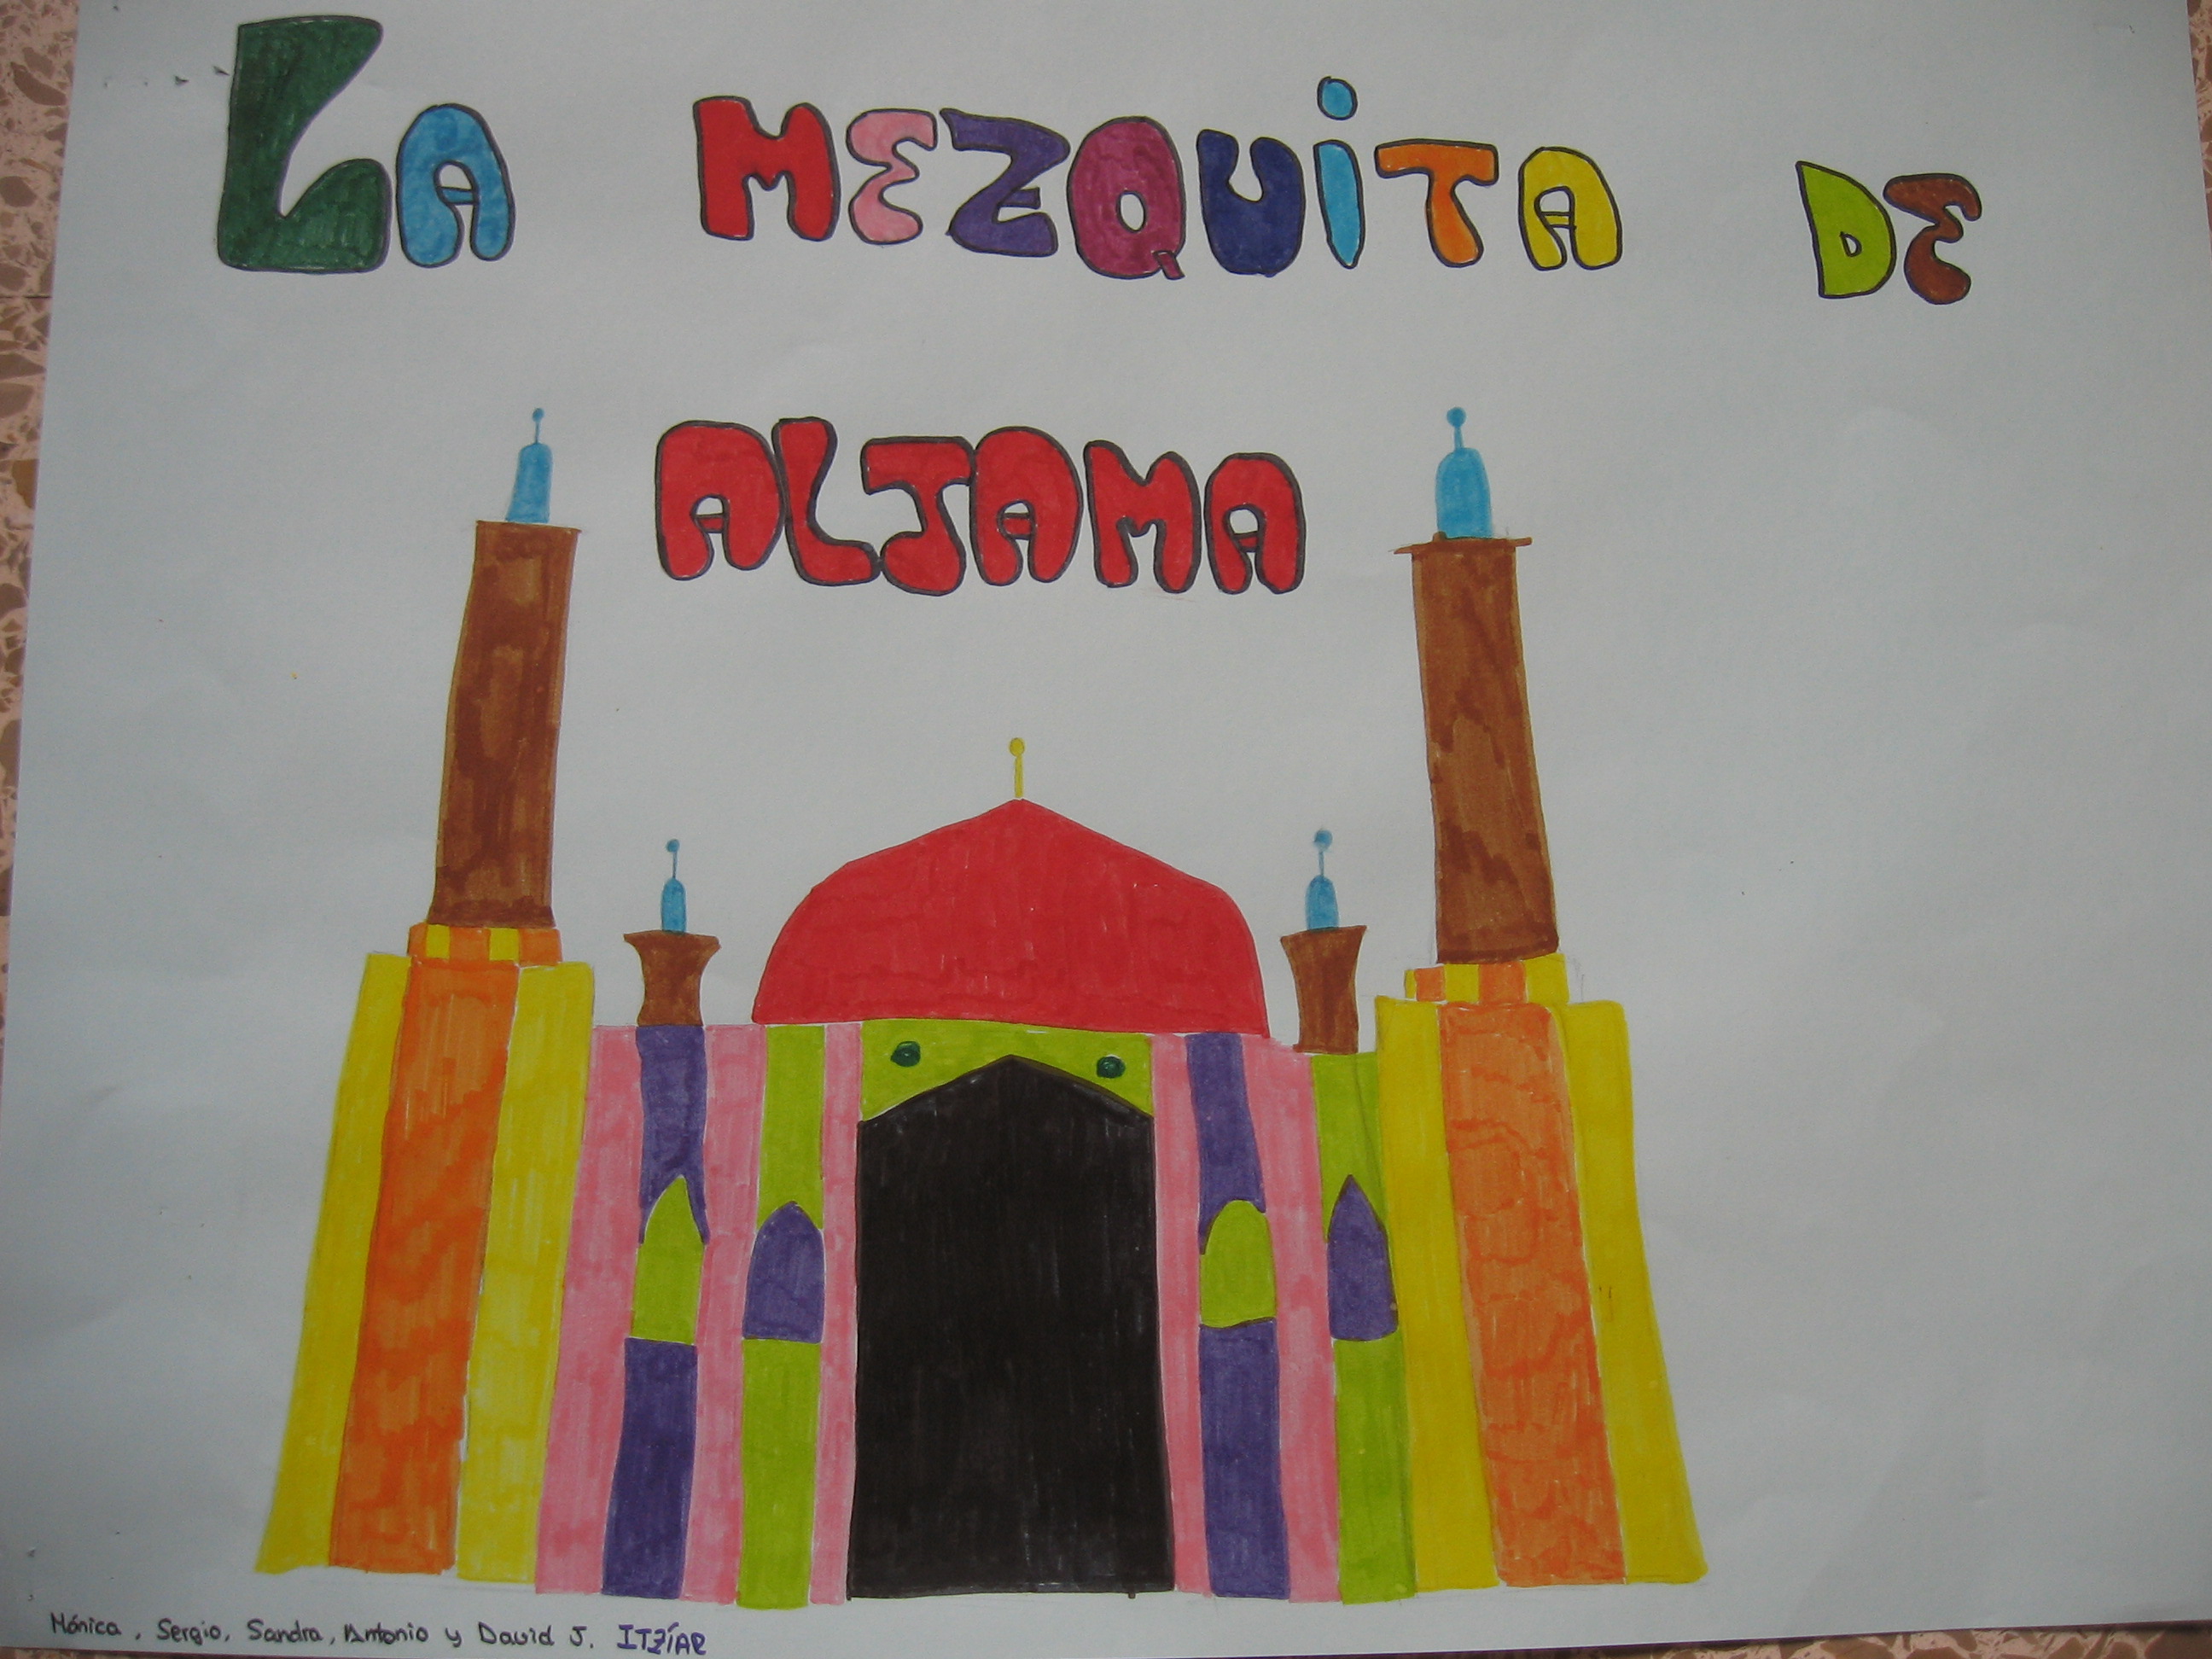 LA MEZQUiTA DE
ALJAMA
Mónica, Sergio, Sandra, Antonio y David J. ITZÍAR